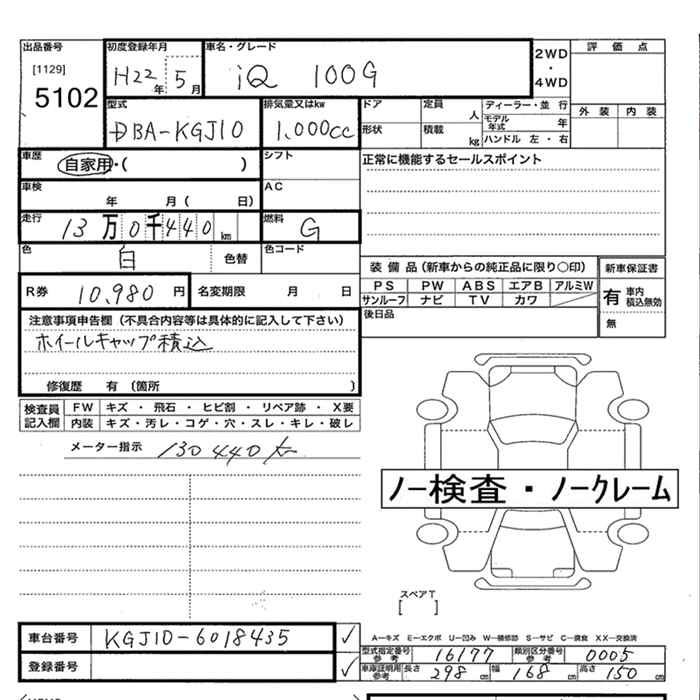 出品番号 初度登録年月 車名・グレード 2WD・4WD 評価点
[1129] 5102 H22年 5月 iQ 100G
外装 内装
型式 排気量又はkw ドア 定員 人 ディーラー・並 行
DBA-KGJ10 1,000cc 形状 積載 kg モデル年式 年
ハンドル 左・右
車歴 自家用・( ) シフト 正常に機能するセールスポイント
車検 年 月( 日) AC
走行 13万0千440km 燃料 G
色 白 色替 色コード
装備品(新車からの純正品に限り○印) 新車保証書
R券 10,980円 名変期限 月 日 PS PW ABS エアB アルミW 有 車内積込無効
サンルーフ ナビ TV カワ
後日品 無
注意事項申告欄(不具合内容等は具体的に記入して下さい)
ホイールキャップ積込
修復歴 有 (箇所 )
検査員記入欄 FW キズ・飛石・ヒビ割・リペア跡・X要
内装 キズ・汚レ・コゲ・穴・スレ・キレ・破レ
メーター指示 130440
ノー検査・ノークレーム
スペアT
[ ]
車台番号 KGJ10-6018435 ✓
A−キズ E−エクボ U−凹み W−補修跡 S−サビ C−腐食 XX−交換済
型式指定番号 参考 16177 類別区分番号 参考 0005
登録番号 ✓ 車庫証明用 参考 長さ 298cm 幅 168cm 高さ 150cm